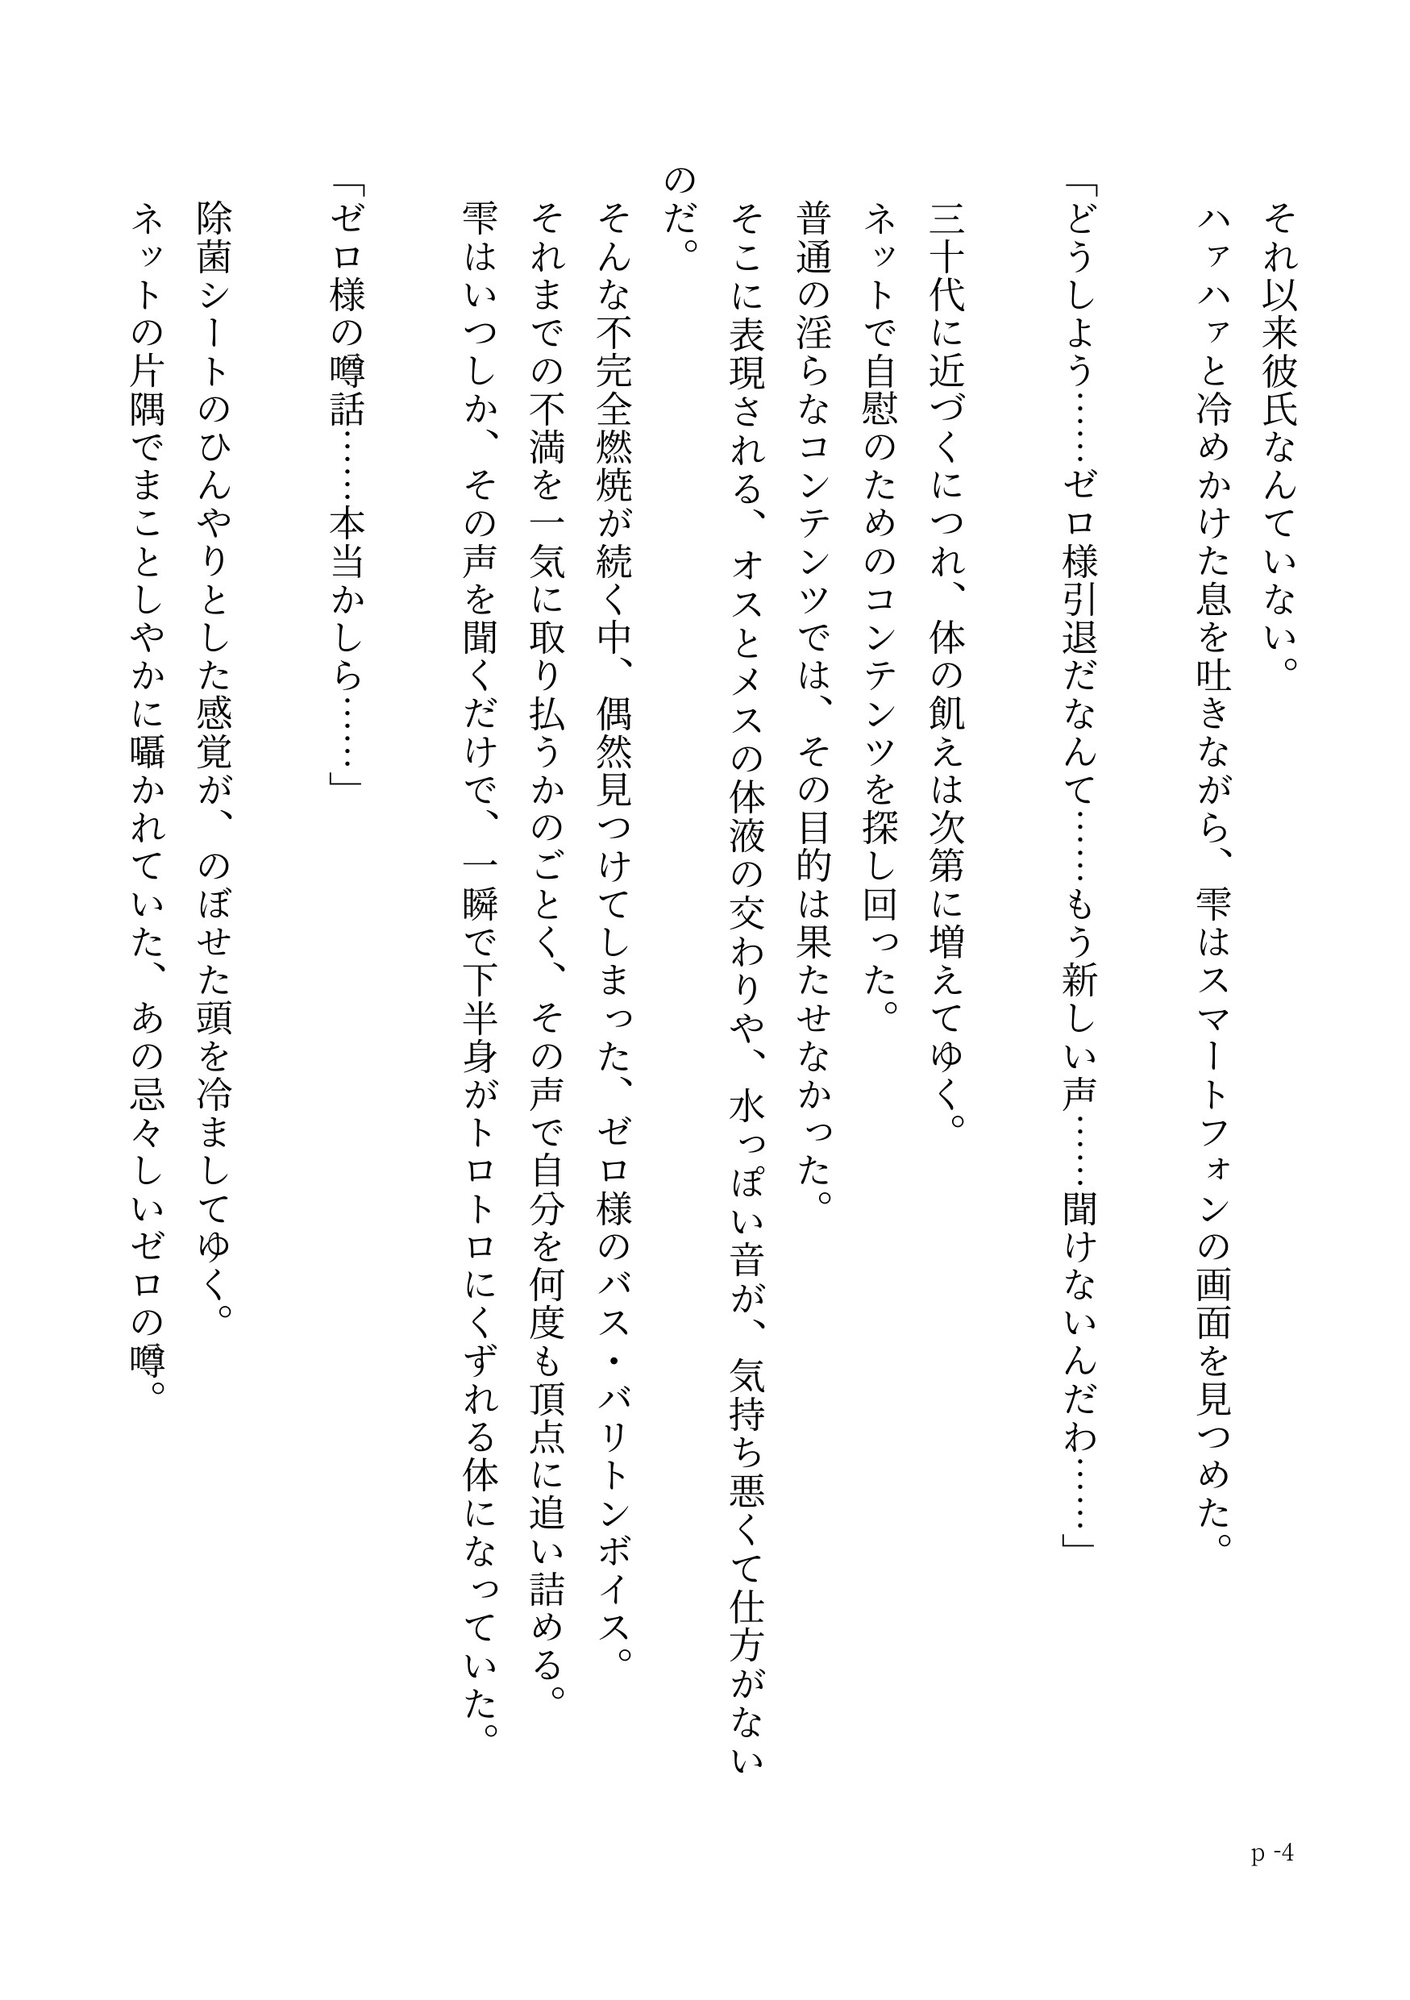 それ以来彼氏なんていない。
ハァハァと冷めかけた息を吐きながら、雫はスマートフォンの画面を見つめた。
「どうしよう……ゼロ様引退だなんて……もう新しい声……聞けないんだわ……」
三十代に近づくにつれ、体の飢えは次第に増えてゆく。
ネットで自慰のためのコンテンツを探し回った。
普通の淫らなコンテンツでは、その目的は果たせなかった。
そこに表現される、オスとメスの体液の交わりや、水っぽい音が、気持ち悪くて仕方がない
のだ。
そんな不完全燃焼が続く中、偶然見つけてしまった、ゼロ様のバス・バリトンボイス。
それまでの不満を一気に取り払うかのごとく、その声で自分を何度も頂点に追い詰める。
雫はいつしか、その声を聞くだけで、一瞬で下半身がトロトロにくずれる体になっていた。
「ゼロ様の噂話……本当かしら……」
除菌シートのひんやりとした感覚が、のぼせた頭を冷ましてゆく。
ネットの片隅でまことしやかに囁かれていた、あの忌々しいゼロの噂。
p -4